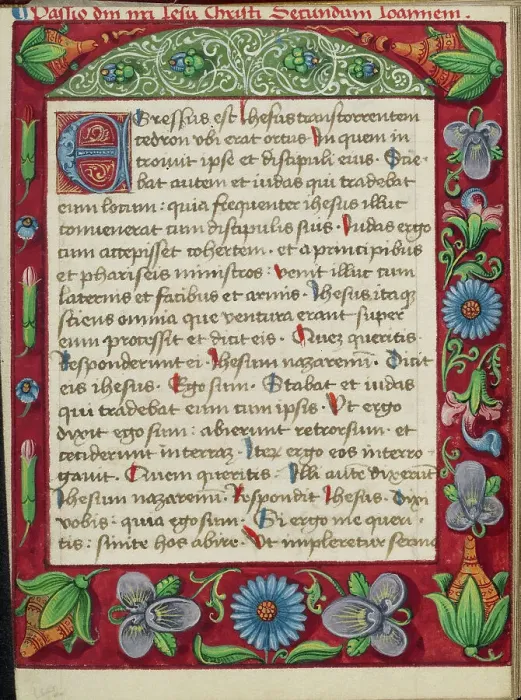 Passio dm nri Iesu Christi Secundum Ioannem.
Egressus est Ihesus trans torrentem
cedron vbi erat ortus In quem in
troiuit ipse et discipuli eius. Scie-
bat autem et iudas qui tradebat
eum locum: quia frequenter ihesus illuc
conuenerat cum discipulis suis. Iudas ergo
cum accepisset cohortem. et a principibus
et phariseis ministros: venit illuc cum
laternis et facibus et armis. Ihesus itaq
sciens omnia que ventura erant super
eum processit et dicit eis. Quez queritis
Responderunt ei. Ihesum nazarenū. Dicit
eis ihesus. Ego sum. Stabat et iudas
qui tradebat eum cum ipsis. Vt ergo
dixit ego sum: abierunt retrorsum. et
ceciderunt in terraz. Iterz ergo eos interro
gauit. Quem queritis. Illi autē dixerūt
Ihesum nazarenū. Respondit Ihesus. Dixi
vobis: quia ego sum. Si ergo me queri-
tis: sinite hos abire. Vt impleretur sermo